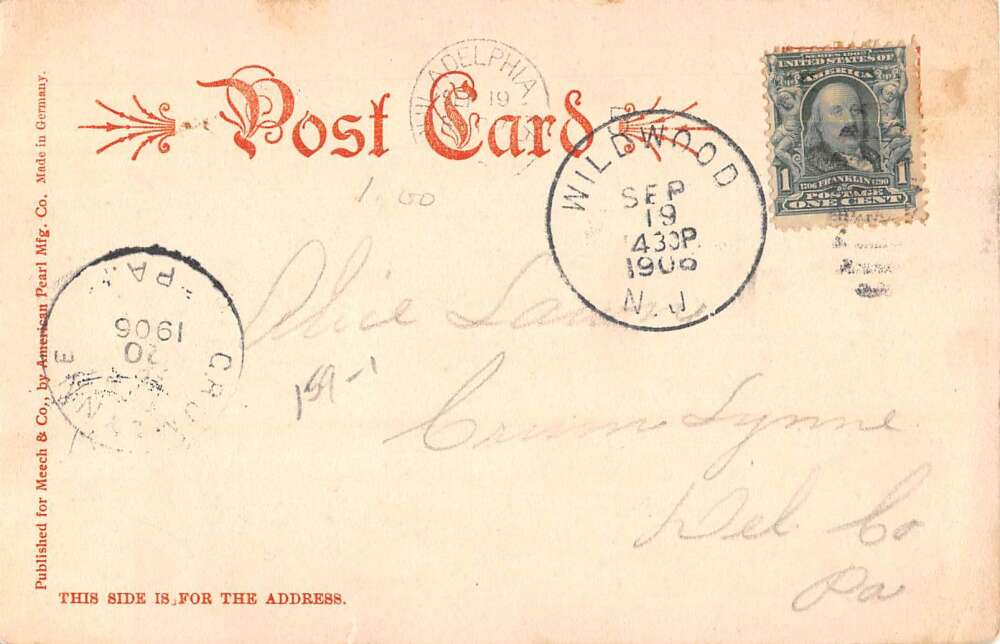 Post Card
PHILADELPHIA
19
WILDWOOD
SEP
19
430P
1906
N.J.
SERIES 1902
UNITED STATES OF
AMERICA
1706 FRANKLIN 1790
1 1
POSTAGE
ONE CENT
1.00
CRUM LYNNE
20
1906
PA.
Alice
159-1
Crum Lynne
Del. Co
Pa
Published for Meech & Co., by American Pearl Mfg. Co. Made in Germany.
THIS SIDE IS FOR THE ADDRESS.